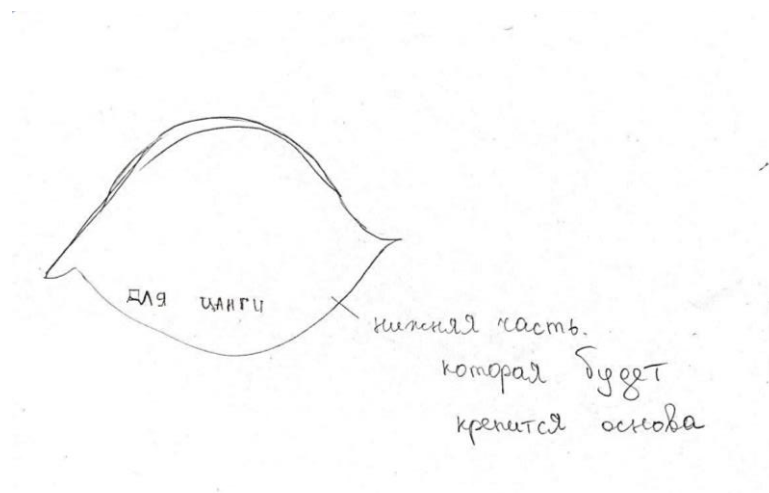 для цанги
нижняя часть.
которая будет
крепится основа